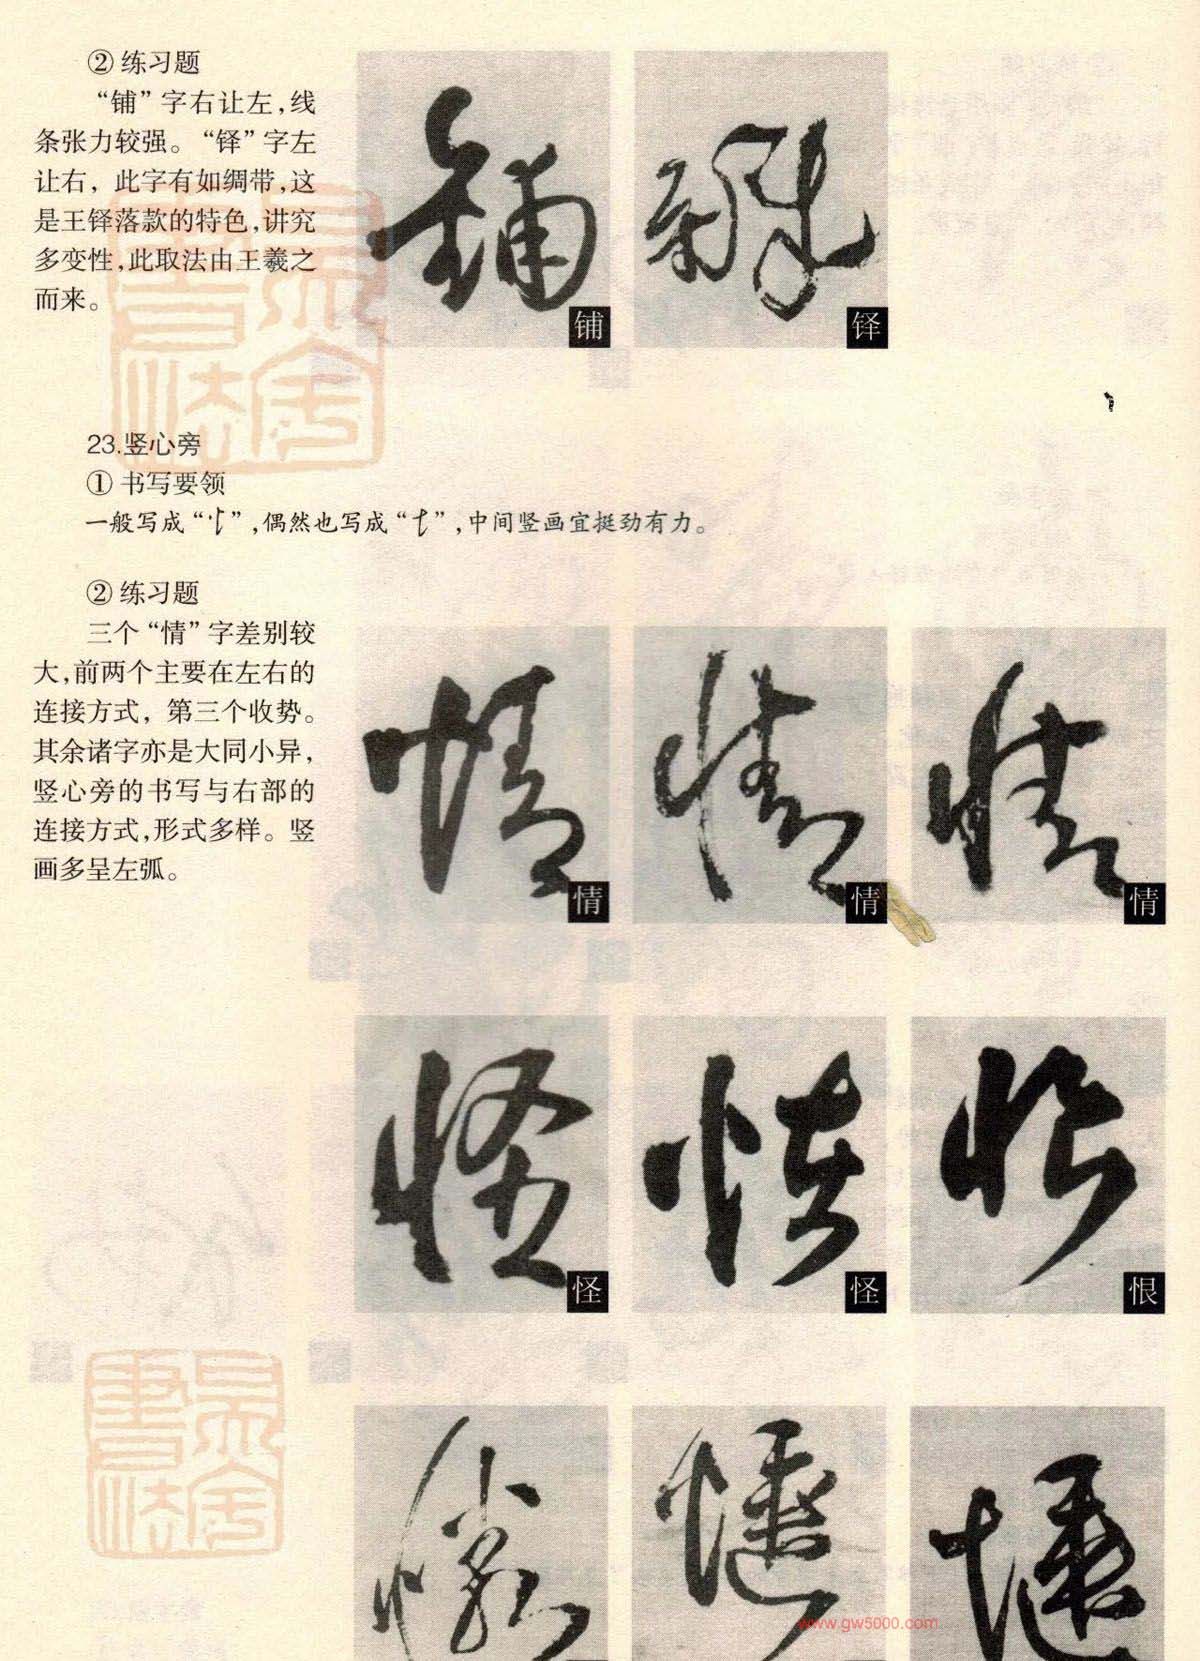 ② 练习题
“铺”字右让左,线
条张力较强。“铎”字左
让右,此字有如绸带,这
是王铎落款的特色,讲究
多变性,此取法由王羲之
而来。
铺
铎
23.竖心旁
① 书写要领
一般写成“忄”,偶然也写成“”,中间竖画宜挺劲有力。
② 练习题
三个“情”字差别较
大,前两个主要在左右的
连接方式,第三个收势。
其余诸字亦是大同小异,
竖心旁的书写与右部的
连接方式,形式多样。竖
画多呈左弧。
情
情
情
怪
怪
恨
www.gw5000.com